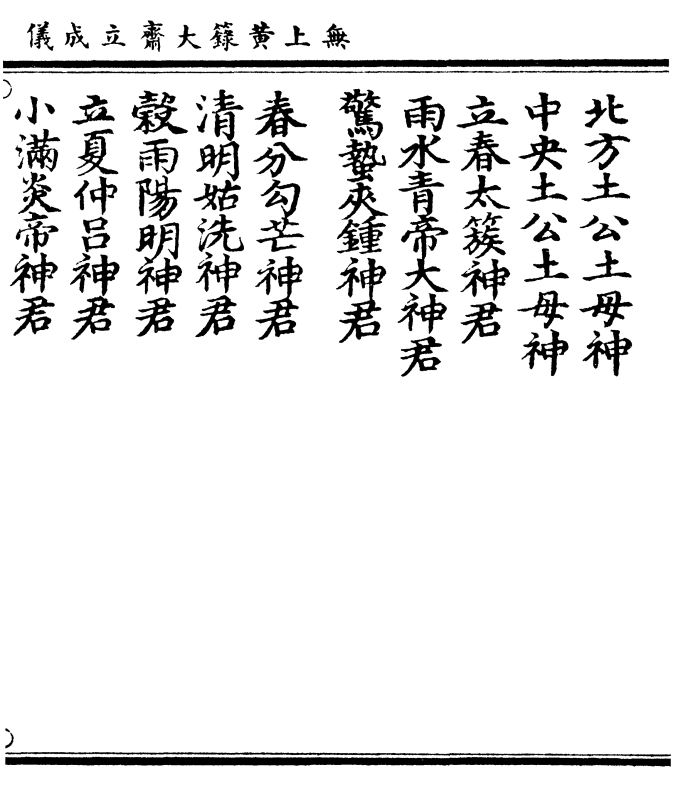 無上黄籙大齋立成儀
北方土公土母神
中央土公土母神
立春太簇神君
雨水青帝大神君
驚蟄夾鍾神君
春分勾芒神君
清明姑洗神君
穀雨陽明神君
立夏仲呂神君
小滿炎帝神君